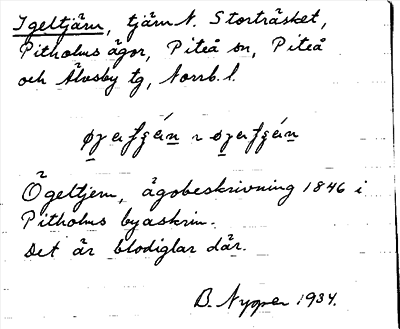 Igeltjärn, tjärn N. Storträsket,
Pitholms ägor, Piteå sn, Piteå
och Älvsby tg, Norrb. l.
Ögeltjern, ägobeskrivning 1846 i
Pitholms byaskrin.
Det är blodiglar där.
B. Nyman 1934.